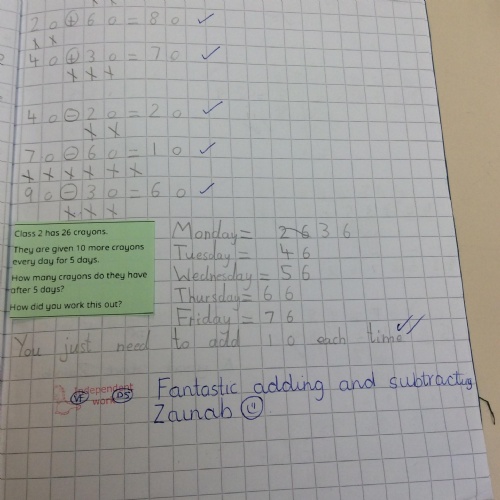 20+60=80 ✓
x x
40+30=70 ✓
x x x
40-20=20 ✓
x x
70-60=10 ✓
x x x x x x
90-30=60 ✓
x x x
Class 2 has 26 crayons.
They are given 10 more crayons
every day for 5 days.
How many crayons do they have
after 5 days?
How did you work this out?
Monday= 26 36
Tuesday= 46
Wednesday= 56
Thursday= 66
Friday= 76
You just need to add 10 each time ✓✓
independent
work
VF DS
Fantastic adding and subtracting
Zainab